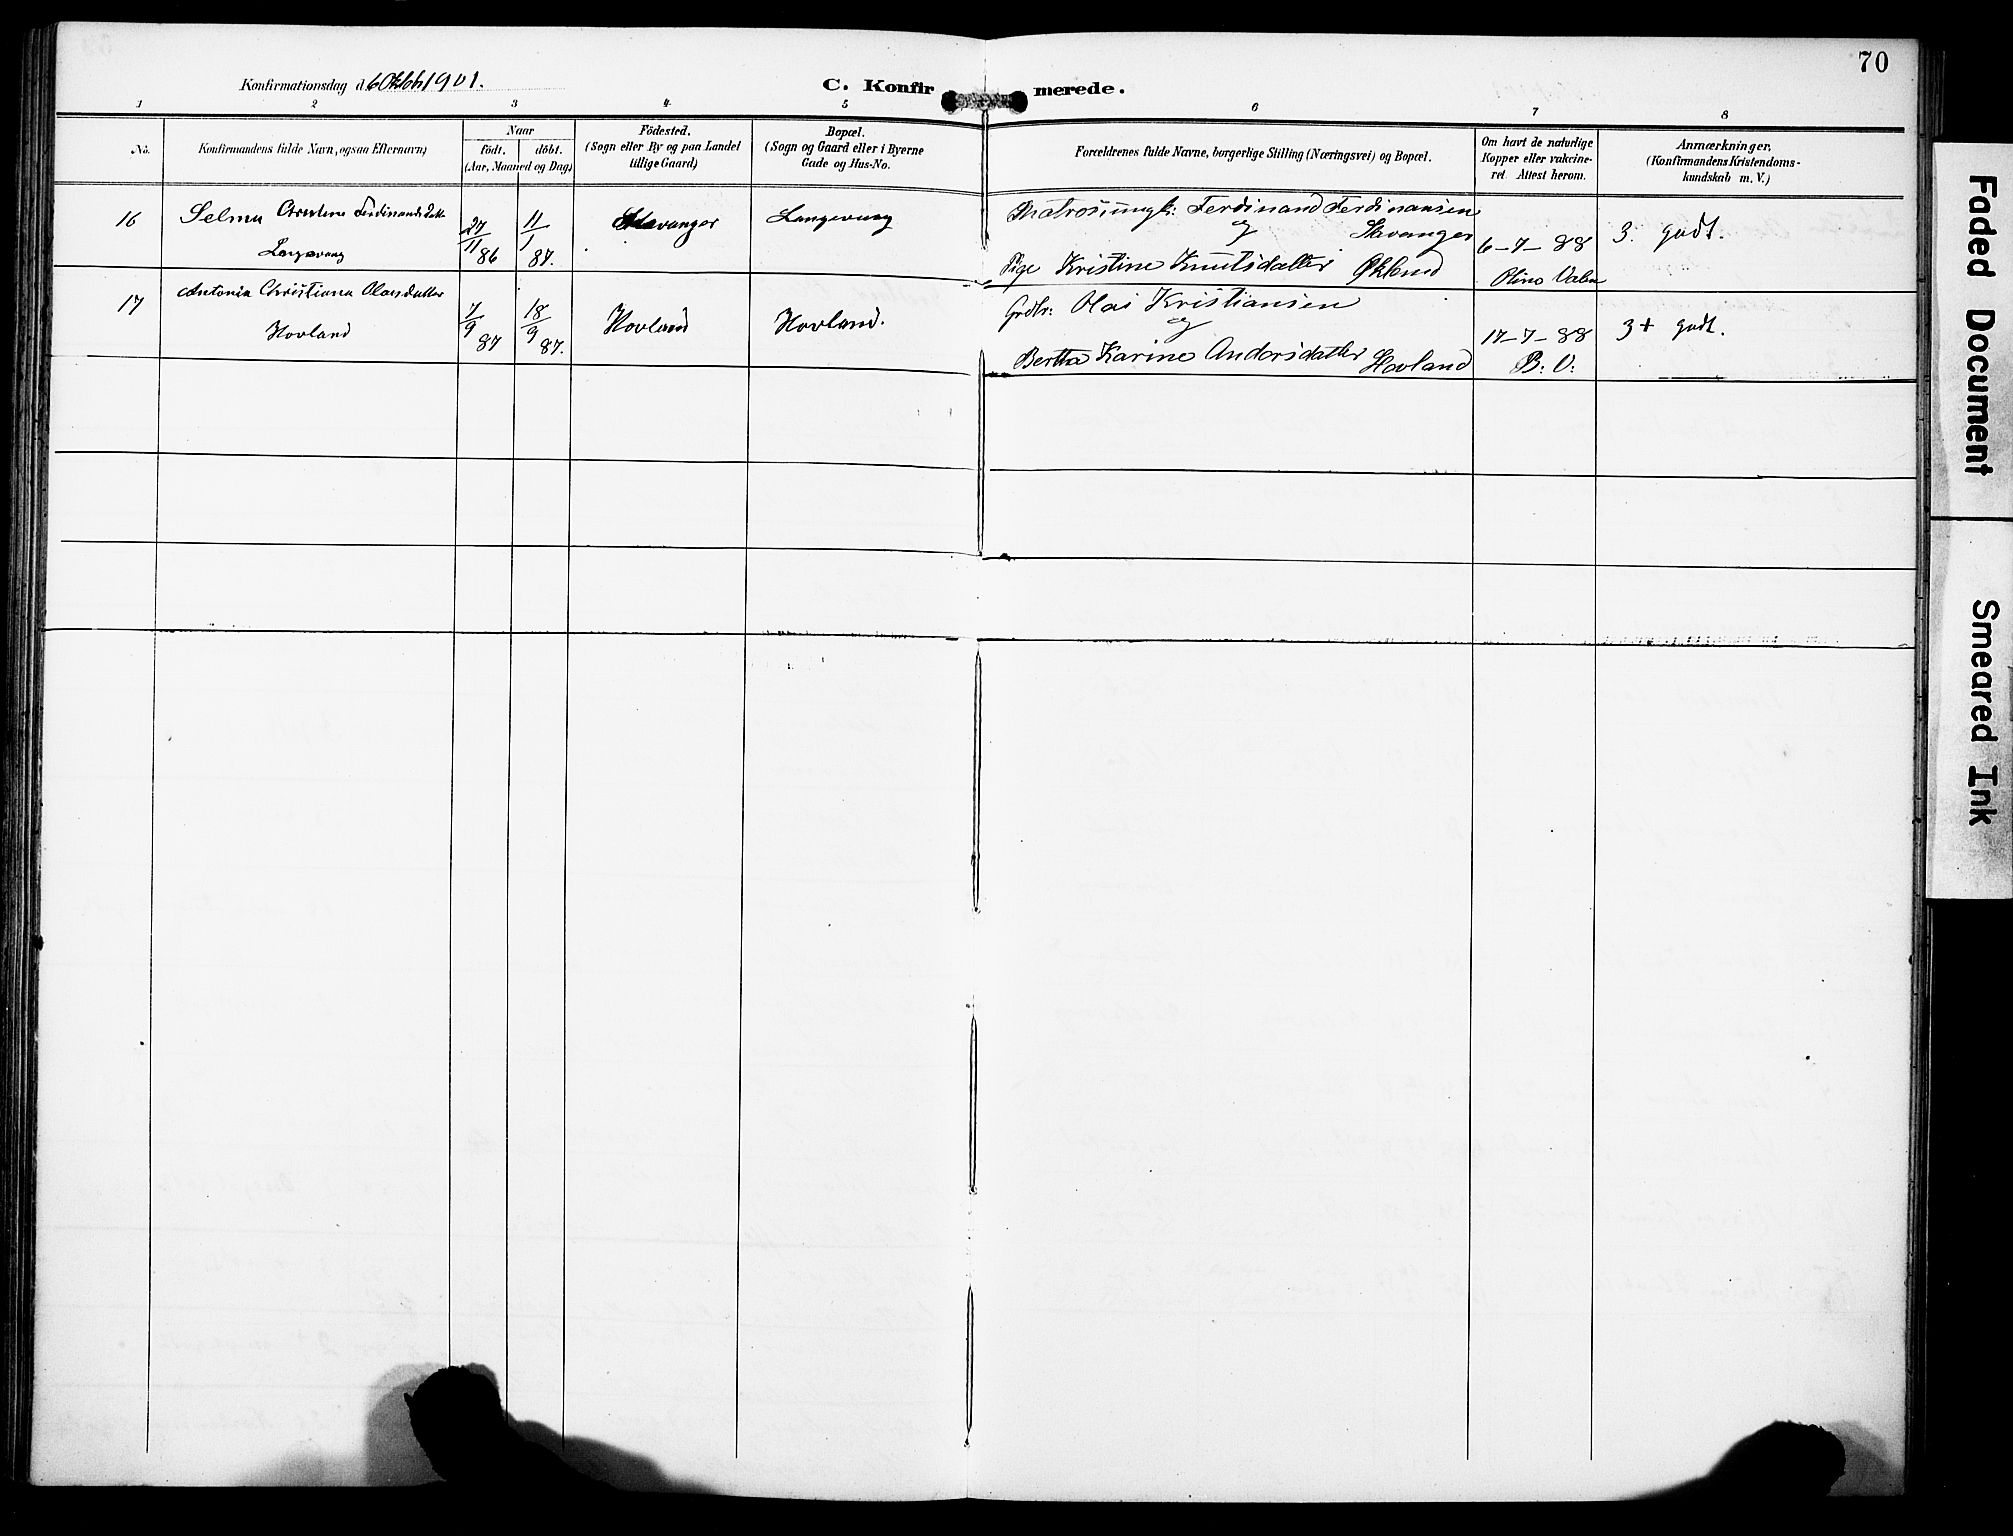 70
Konfirmationsdag d. 6 Oktob 1901.
C. Konfirmerede.
1 2 3 4 5 6 7 8
No.
Konfirmandens fulde Navn, ogsaa Efternavn)
Naar
födt. döbt.
(Aar, Maaned og Dag)
Födested.
(Sogn eller By og paa Landet
tillige Gaard)
Bopæl.
(Sogn og Gaard eller i Byerne
Gade og Hus-No.
Forældrenes fulde Navne, borgerlige Stilling (Næringsvei) og Bopæl.
Om havt de naturlige
Kopper eller vakcine-
ret. Attest herom.
Anmærkninger.
(Konfirmandens Kristendoms-
kundskab m. V.)
16
Selma Christine Ferdinandsdatter
Langevaag
27/11 86
11/1 87.
Stavanger
Langevaag
Matros ungk: Ferdinand Ferdinansen
og Stavanger
Pige Kristine Knutsdatter Økland
6-7-88
Stine Valen
3. godt.
17
Antonia Christiana Olausdatter
Hovland
7/9 87
18/9 87.
Hovland
Hovland.
Grdbr: Olai Kristiansen
og
Bertha Karine Andersdatter Hovland
17-7-88
B. V.
3+ godt.
Faded Document
Smeared Ink